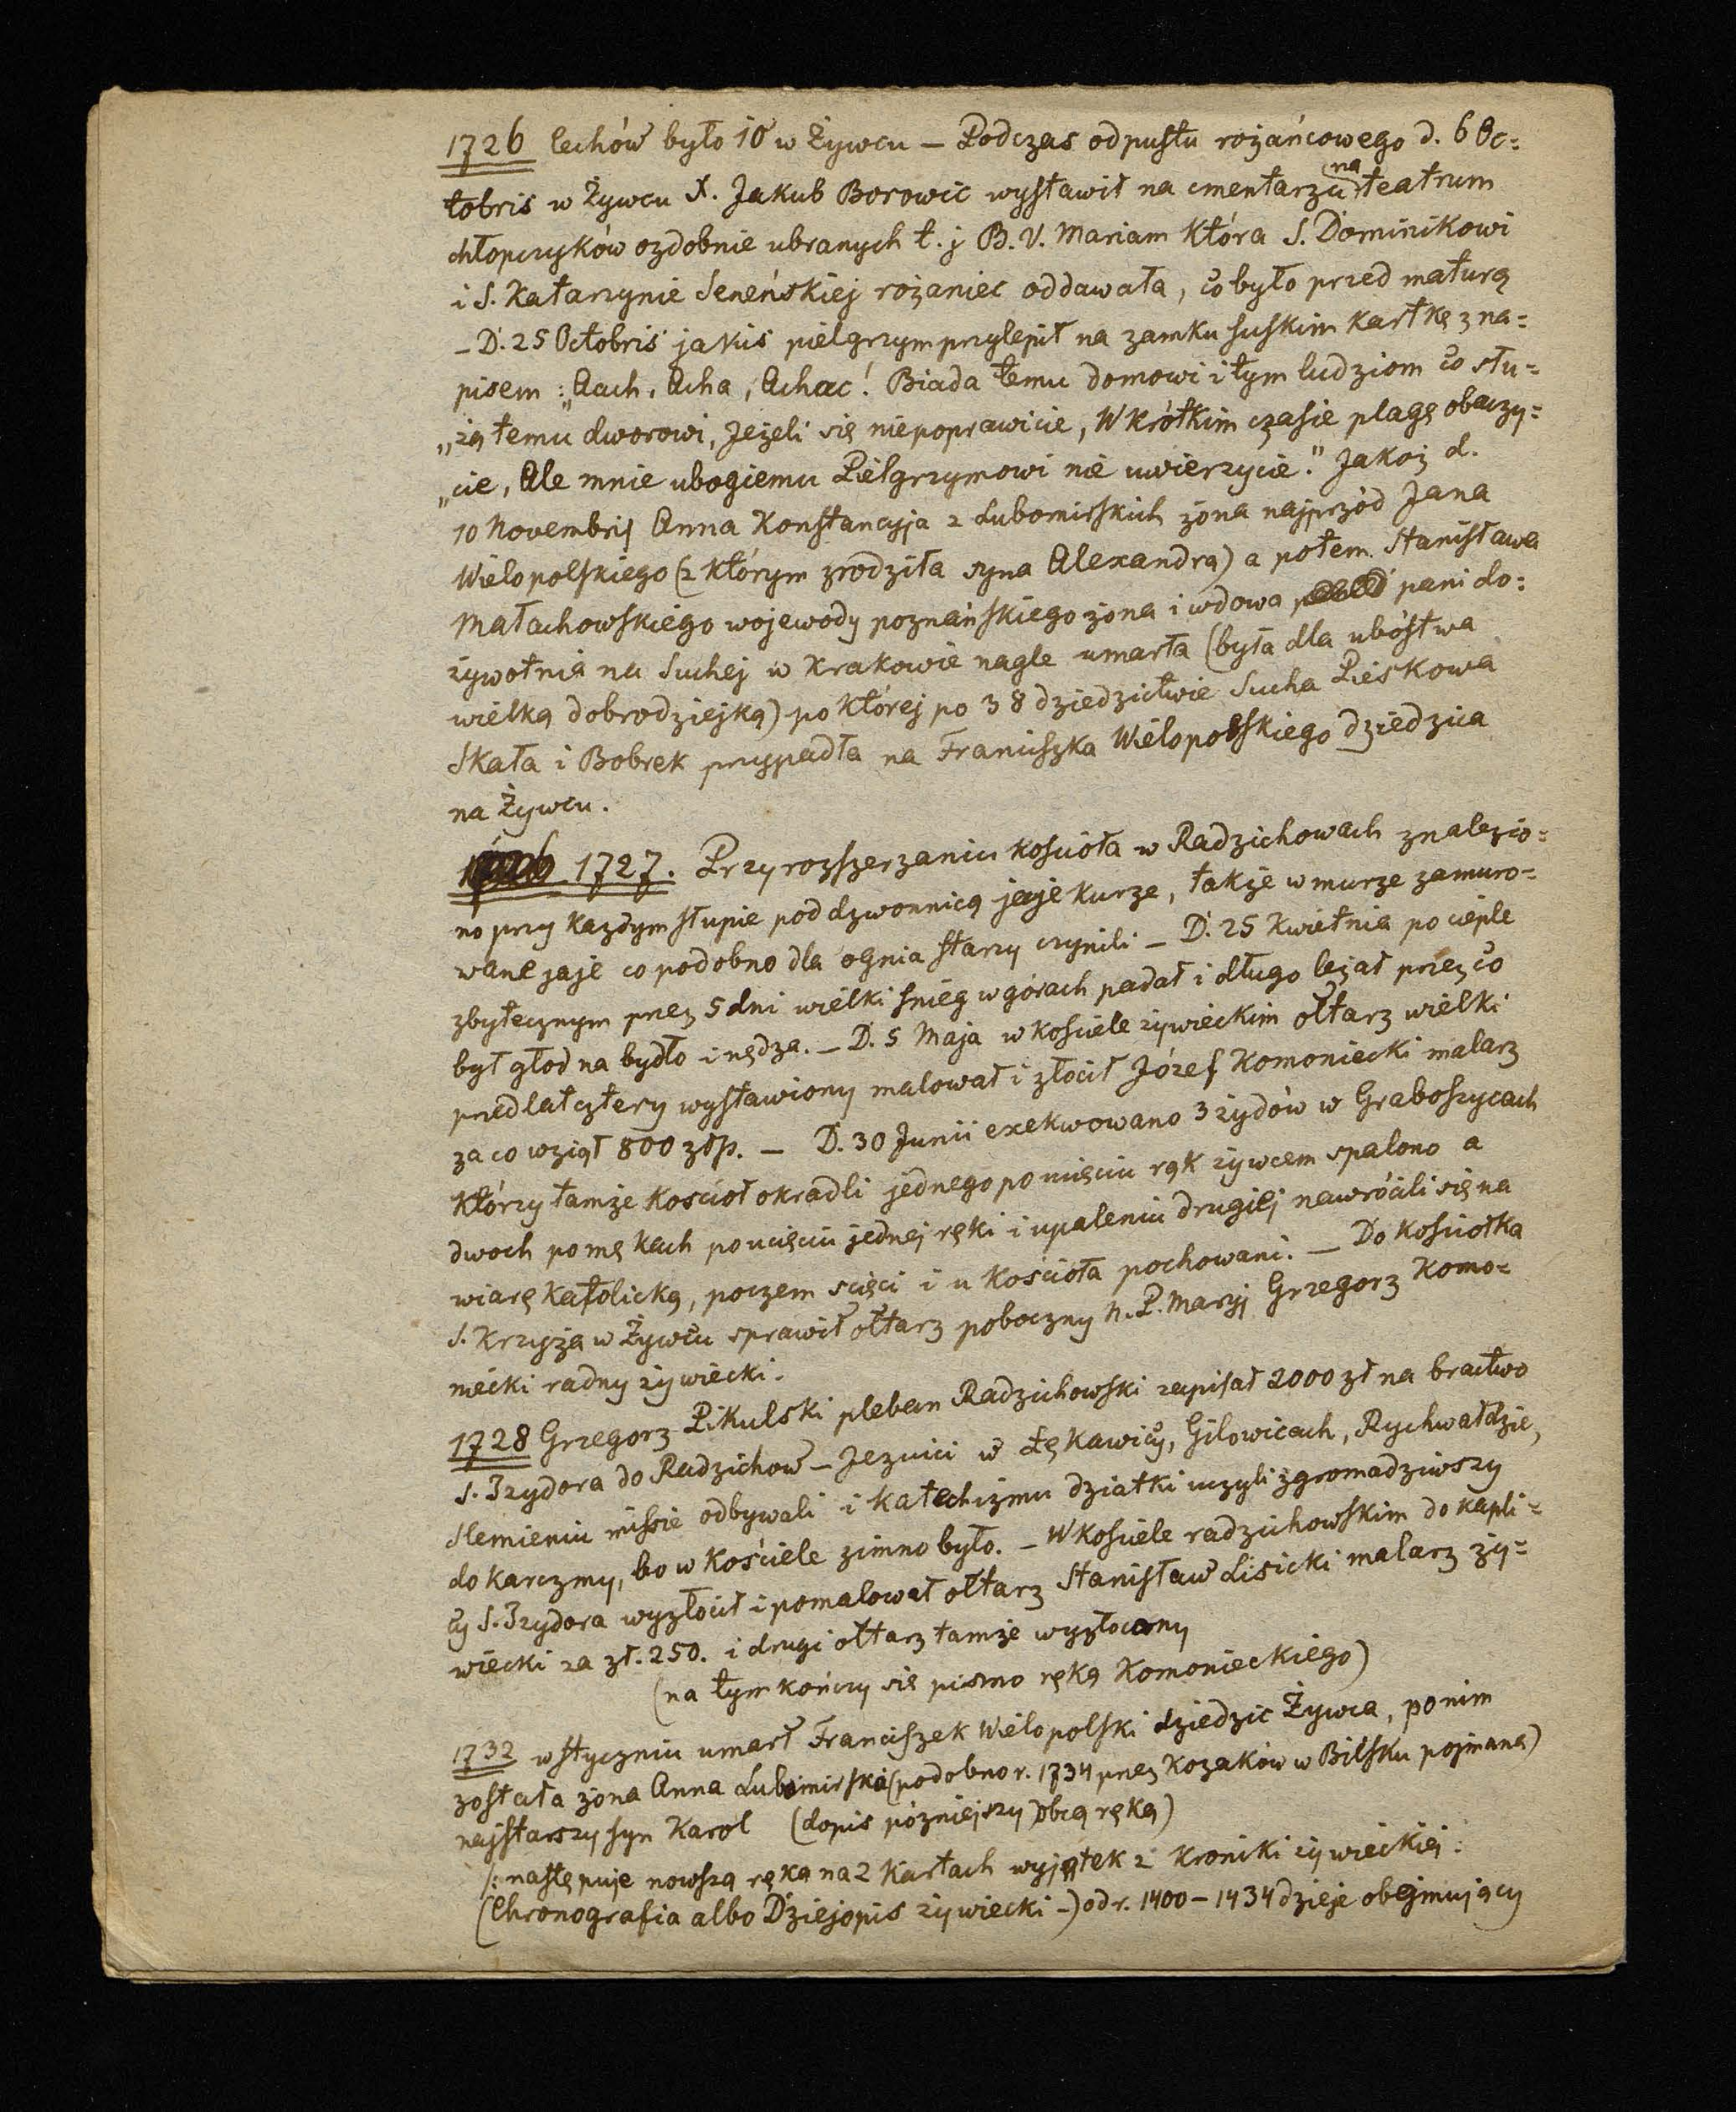 1726 Cechów było 10 w Żywcu – Podczas odpustu rożańcowego d. 6 Oc=
tobris w Żywcu X. Jakub Borowic wystawił na cmentarzu na teatrum
chłopczyków ozdobnie ubranych t. j B. V. Mariam która S. Dominikowi
i S. Katarzynie Seneńskiej rożaniec oddawała, co było przed maturą
– D. 25 Octobris jakiś pielgrzym przylepił na zamku suskim kartkę z na=
pisem: „Aach, Acha, Achac! Biada temu domowi i tym ludziom co słu=
„żą temu dworowi, Jeżeli się niepoprawicie, W krótkim czasie plagę obaczy=
„cie, Ale mnie ubogiemu Pielgrzymowi nie uwierzycie." Jakoż d.
10 Novembris Anna Konstancyja z Lubomirskich żona najprzód Jana
Wielopolskiego (z którym zrodziła syna Alexandra) a potem Stanisława
Małachowskiego wojewody poznańskiego żona i wdowa pani do=
żywotnia na Suchej w Krakowie nagle umarła (była dla ubóstwa
wielką dobrodziejką) po której po 38 dziedzictwie Sucha Pieskowa
Skała i Bobrek przypadła na Franciszka Wielopolskiego dziedzica
na Żywcu.
1726 1727. Przy rozszerzaniu kościoła w Radzichowach znalezio=
no przy każdym słupie pod dzwonnicą jaje kurze, także w murze zamuro=
wane jaje co podobno dla ognia starzy czynili – D. 25 Kwietnia po cieple
zbytecznym przez 5 dni wielki śnieg w górach padał i długo leżał przez co
był głod na bydło i nędza. – D. 5 Maja w kościele żywieckim ołtarz wielki
przed lat cztery wystawiony malował i złocił Józef Komoniecki malarz
za co wziął 800 złp. – D. 30 Junii exekwowano 3 żydów w Graboszycach
którzy tamże kościoł okradli jednego po ucięciu rąk żywcem spalono a
dwoch po mękach po ucięciu jednej ręki i upaleniu drugiej nawróciłi się na
wiarę katolicką, poczem scięci i u kościoła pochowani. – Do kościołka
S. Krzyża w Żywcu sprawił ołtarz poboczny N. P. Maryj Grzegorz Komo=
niecki radny żywiecki.
1728 Grzegorz Pikulski pleban Radzichowski zapisał 2000 zł na bractwo
S. Izydora do Radzichow – Jezuici w Łękawicy, Gilowicach, Rychwałdzie,
Slemieniu missie odbywali i katechizmu dziatki uczyli zgromadziwszy
do karczmy, bo w kościele zimno było. – W kościele radzichowskim do kapli=
cy S. Izydora wyzłocił i pomalował ołtarz Stanisław Lisicki malarz ży=
wiecki za zł. 250. i drugi ołtarz tamże wyzłocony
(na tym kończy się pismo ręką Komonieckiego)
1732 w styczniu umarł Franciszek Wielopolski dziedzic Żywca, po nim
została żona Anna Lubomirska (podobno r. 1734 przez kozaków w Bilsku pojmana)
najstarszy syn Karol (dopis późniejszy obcą ręką)
/: następuje nowszą ręką na 2 kartach wyjątek z kroniki żywieckiej:
(Chronografia albo Dziejopis żywiecki –) od r. 1400 – 1434 dzieje obejmujący